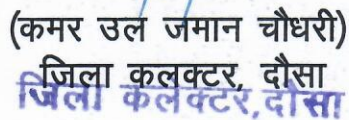 (कमर उल जमान चौधरी)
जिला कलक्टर, दौसा
जिला कलक्टर,दौसा